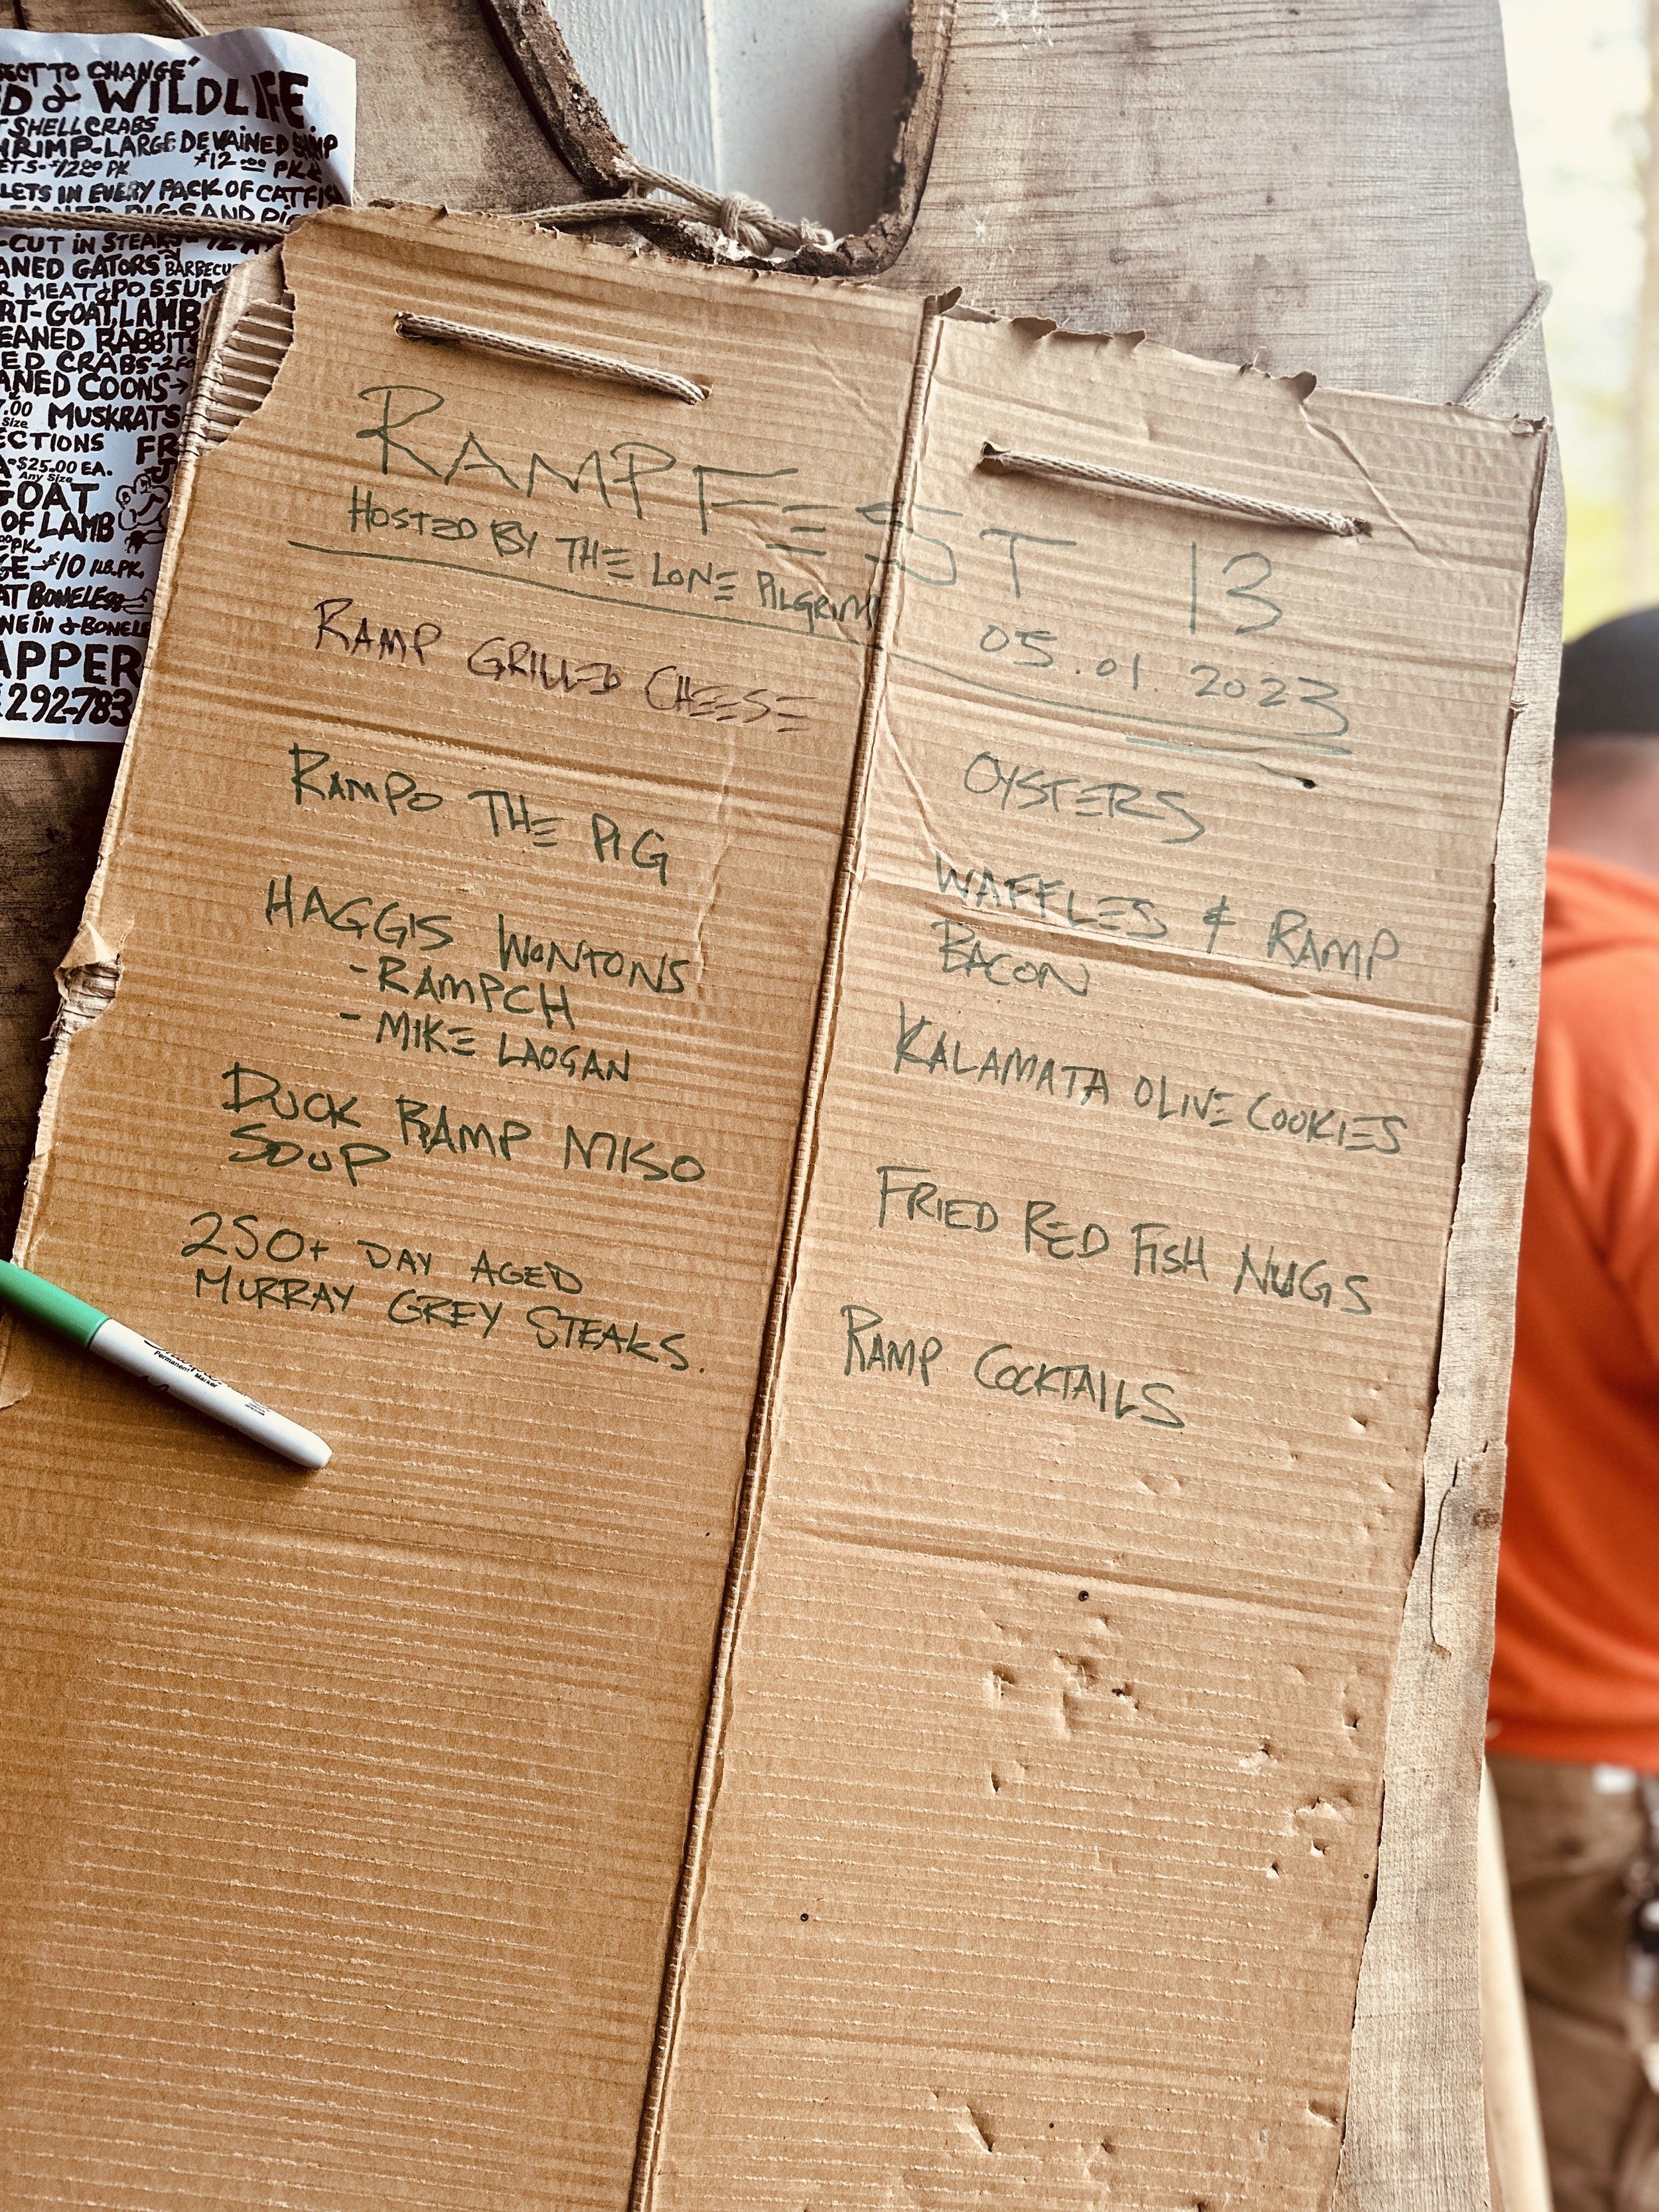 JECT TO CHANGE"
D & WILDLIFE
SHELL CRABS
HRIMP-LARGE DEVAINED
ETS-$12.00 PK $12.00 PKG
LETS IN EVERY PACK OF CATFIS
ANED PIGS AND PIG
-CUT IN STEAKS
ANED GATORS BARBECU
R MEAT & POSSUM
RT-GOAT, LAMB
EANED RABBITS
ED CRABS
ANED COONS→
7.00 MUSKRATS
Size
ECTIONS FR
$25.00 EA.
Any Size
GOAT
OF LAMB
PK.
GE-$10 1LB. PK.
AT BONELESS
NE IN & BONELE
APPER
292-783
RAMPFEST 13
HOSTED BY THE LONE PILGRIM
05.01.2023
RAMP GRILLED CHEESE
RAMPO THE PIG
HAGGIS WONTONS
-RAMPCH
-MIKE LAOGAN
DUCK RAMP MISO
SOUP
250+ DAY AGED
MURRAY GREY STEAKS.
OYSTERS
WAFFLES & RAMP
BACON
KALAMATA OLIVE COOKIES
FRIED RED FISH NUGS
RAMP COCKTAILS
Permanent Marker